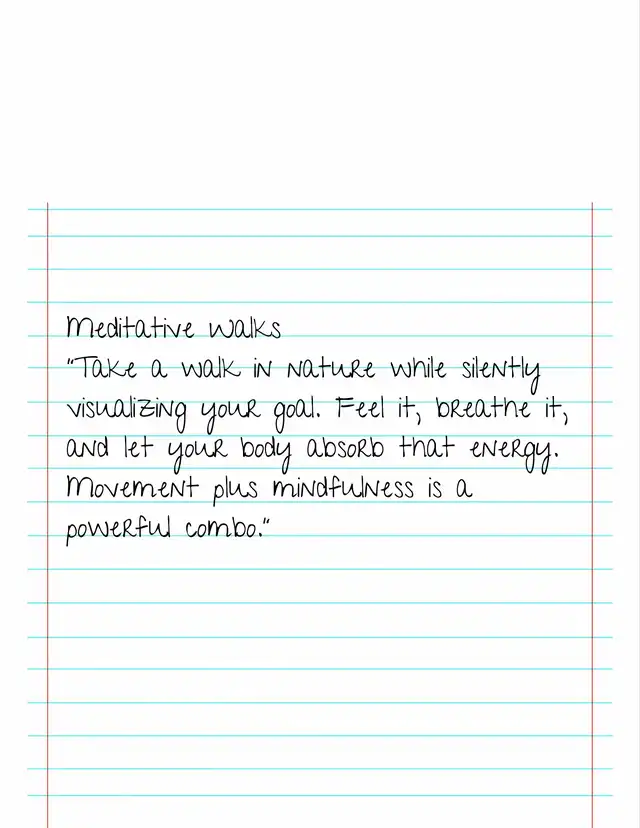 Meditative walks
"Take a walk in nature while silently
visualizing your goal. Feel it, breathe it,
and let your body absorb that energy.
Movement plus mindfulness is a
powerful combo."